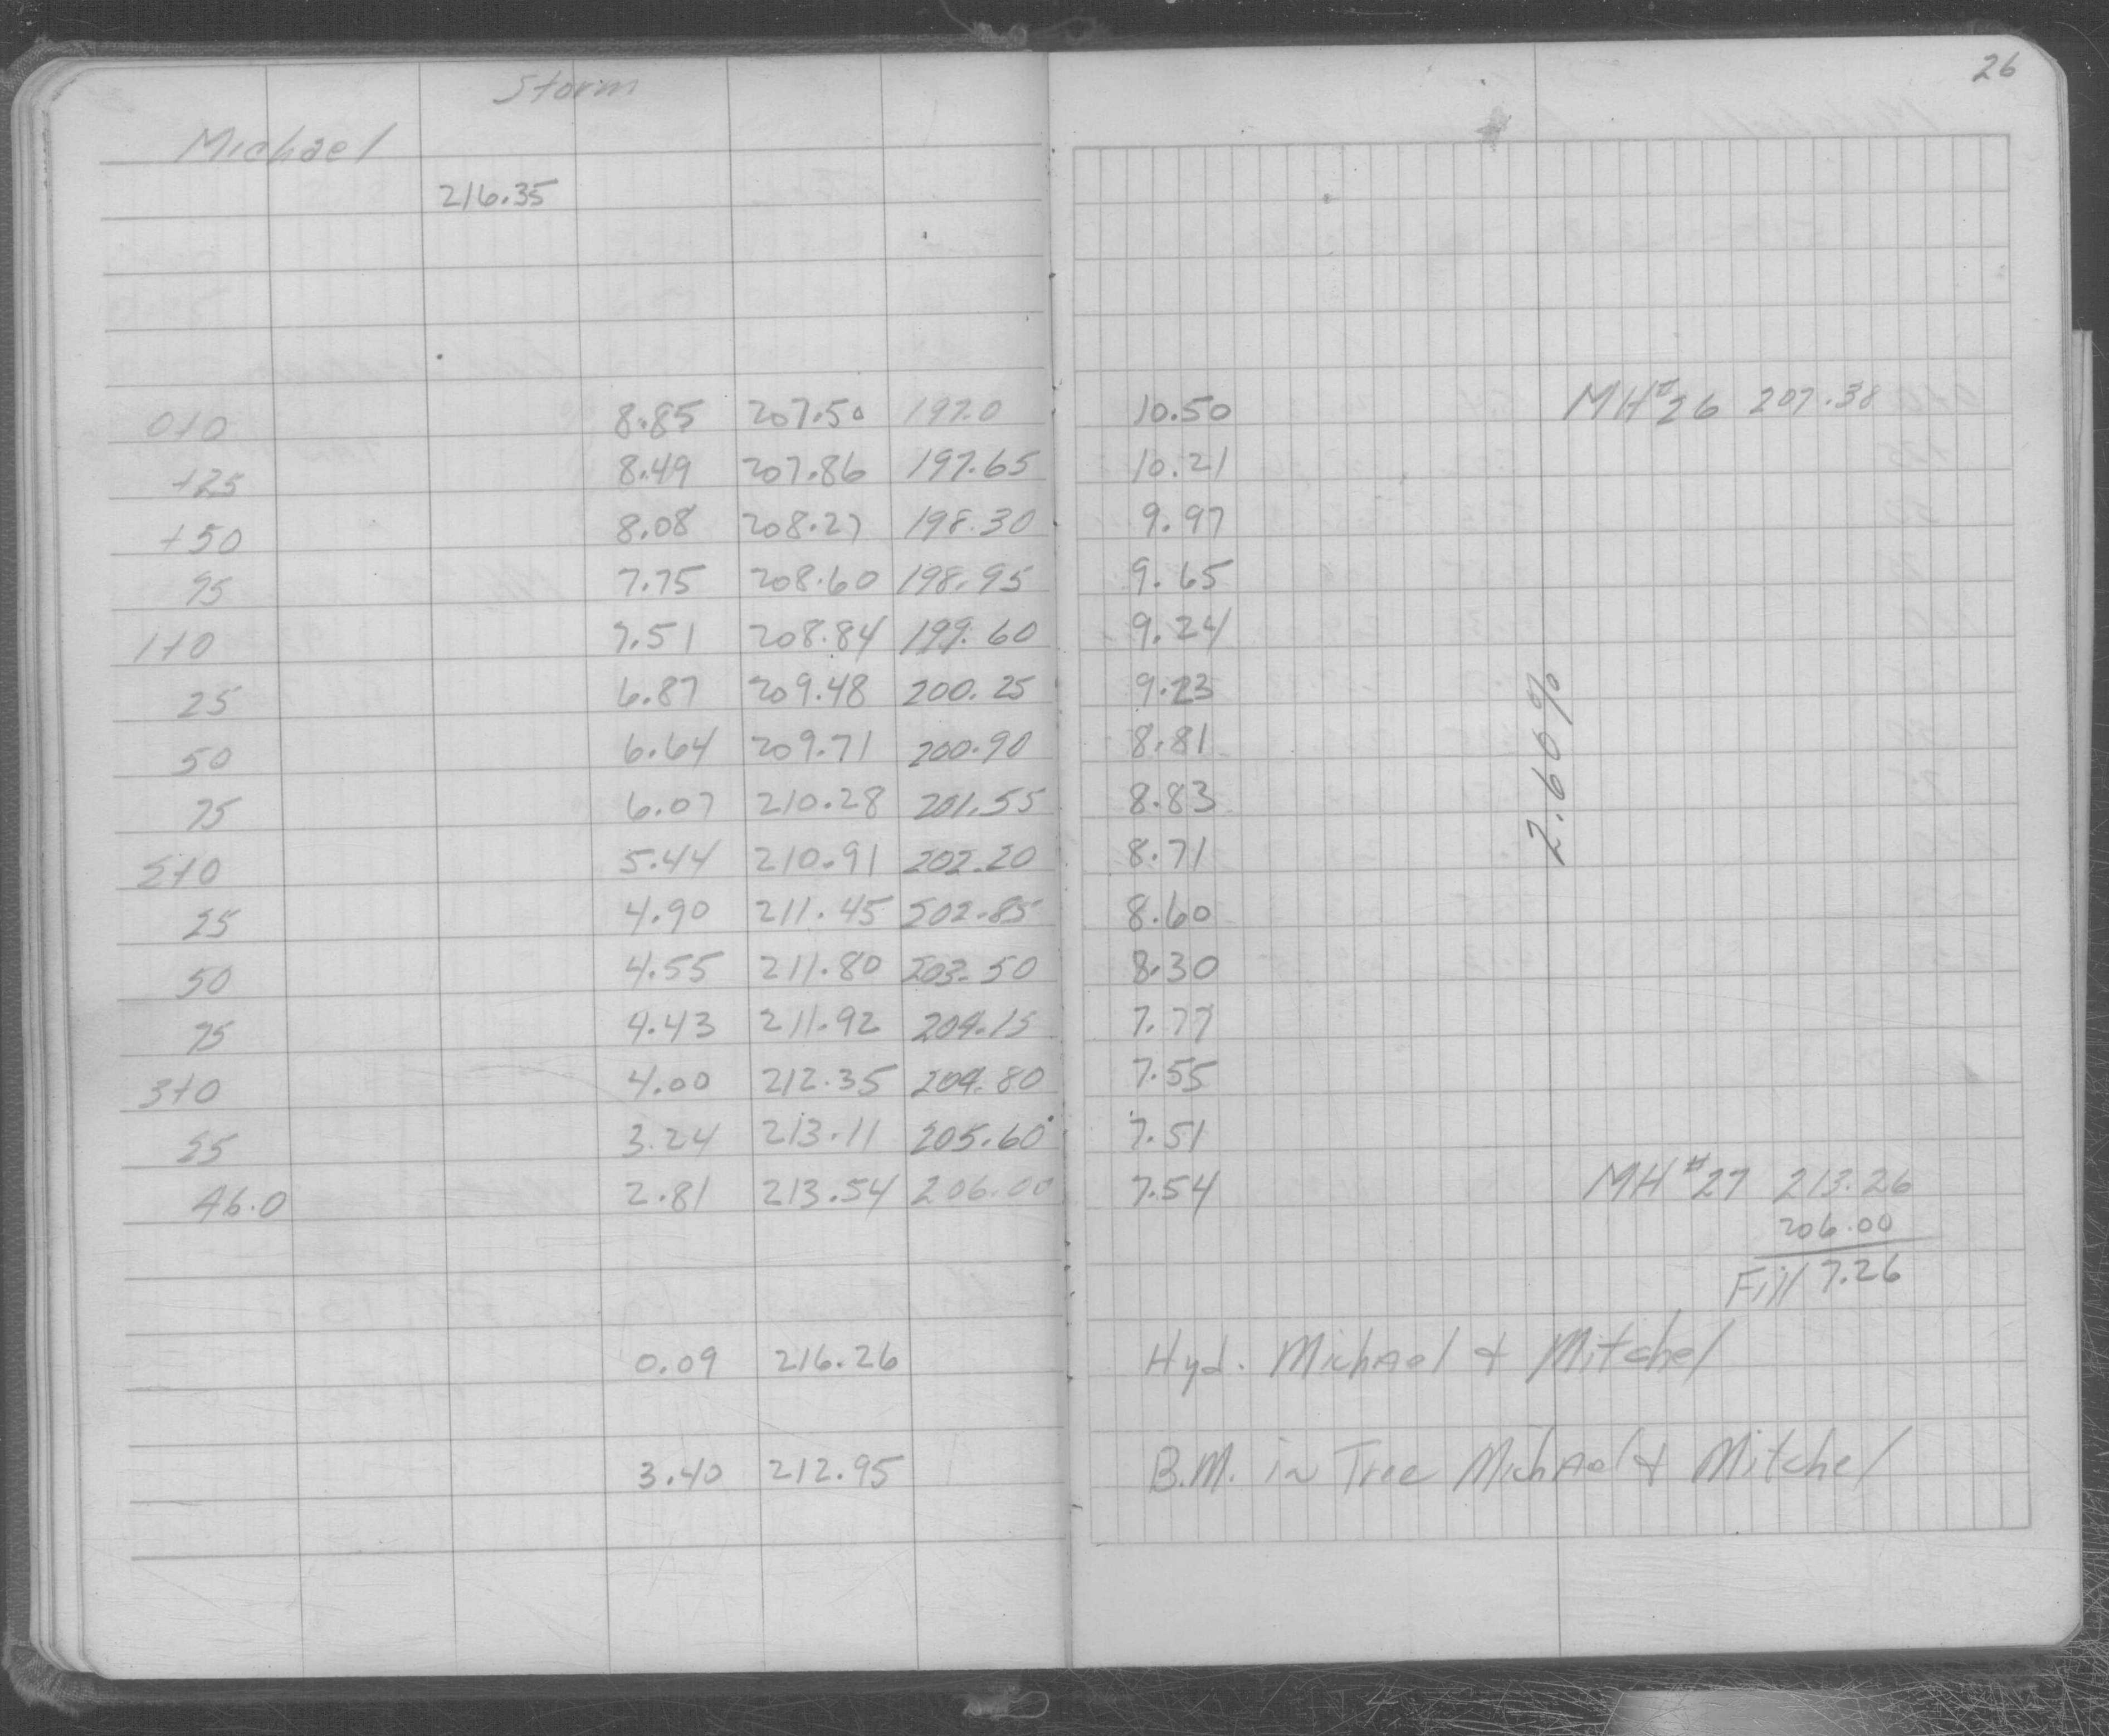 26
Storm
Michael
216.35
0+0 8.85 207.50 197.0 10.50 MH#26 207.38
+25 8.49 207.86 197.65 10.21
+50 8.08 208.27 198.30 9.97
75 7.75 208.60 198.95 9.65
1+0 7.51 208.84 199.60 9.24
25 6.87 209.48 200.25 9.23
50 6.64 209.71 200.90 8.81
75 6.07 210.28 201.55 8.83
2.60%
2+0 5.44 210.91 202.20 8.71
25 4.90 211.45 202.85 8.60
50 4.55 211.80 203.50 8.30
75 4.43 211.92 204.15 7.77
3+0 4.00 212.35 204.80 7.55
25 3.24 213.11 205.60 7.51
46.0 2.81 213.54 206.00 7.54 MH#27 213.26
206.00
Fill 7.26
0.09 216.26 Hyd. Michael & Mitchel
3.40 212.95 B.M. in Tree Michael & Mitchel